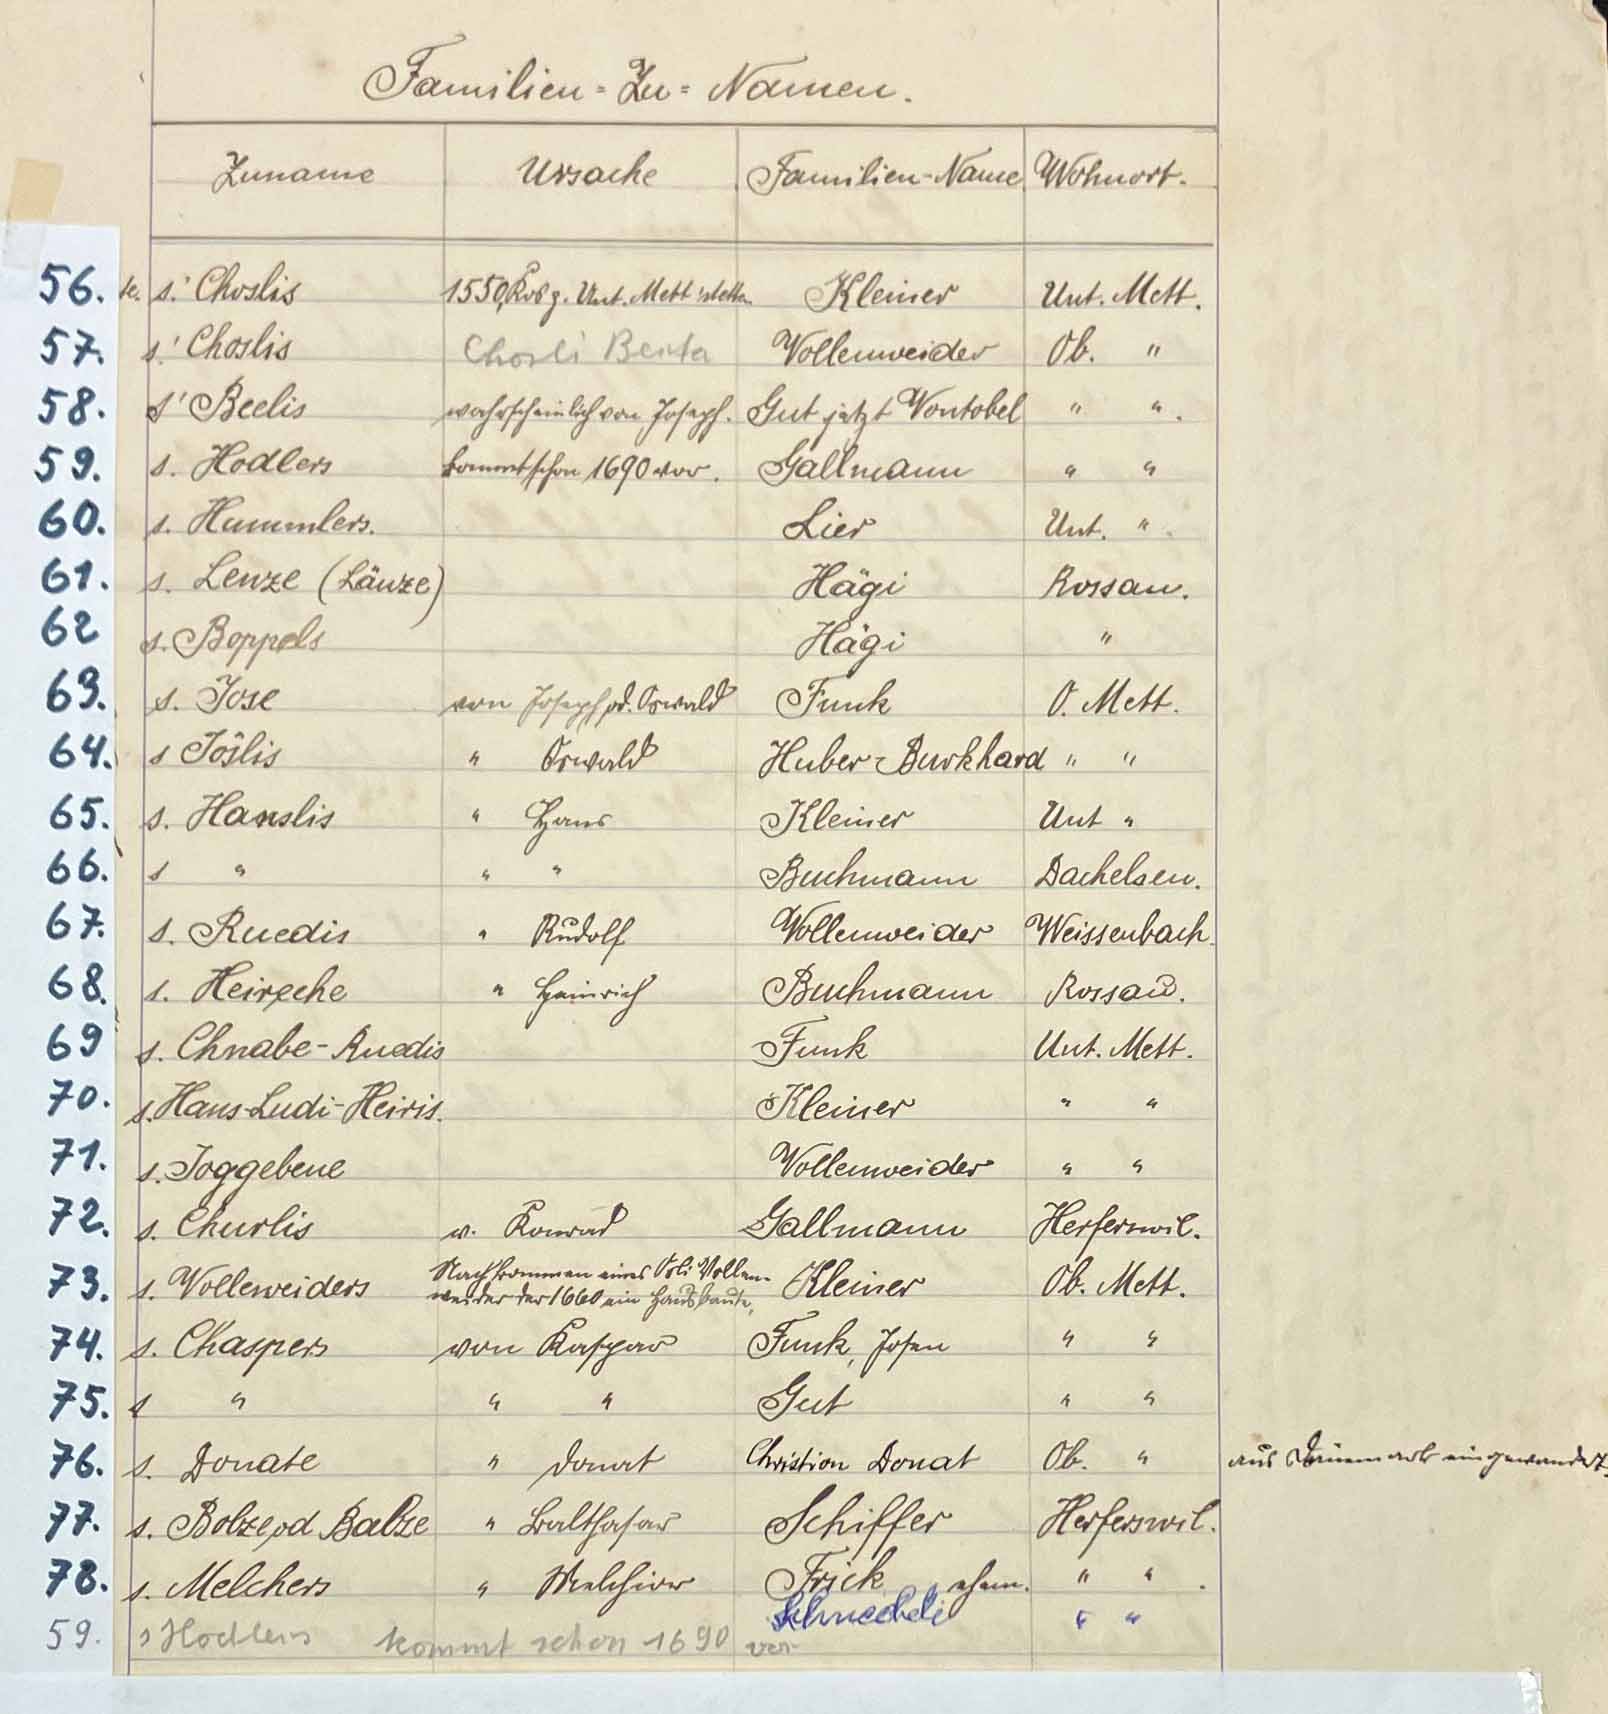 Familien-Zu-Namen.
Zuname Ursache Familien-Name Wohnort.
56. s.' Choslis 1550, Kos z. Unt. Mettstetten Kleiner Unt. Mett.
57. s.' Choslis Chosli Berta Vollenweider Ob. "
58. s' Beelis wahrscheinlich von Joseph. Gut jetzt Vontobel " ".
59. s. Hodlers kommt schon 1690 vor. Gallmann " "
60. s. Hummlers. Lier Unt. ".
61. s. Lenze (Länze) Hägi Rossau.
62 s. Boppels Hägi "
63. s. Jose von Joseph od. Oswald Funk O. Mett.
64. s Jôslis " Oswald Huber-Burkhard " "
65. s. Hanslis " Hans Kleiner Unt "
66. s " " " Buchmann Dachelsen.
67. s. Ruedis " Rudolf Vollenweider Weissenbach.
68. s. Heireche " Heinrich Buchmann Rossau.
69 s. Chnabe-Ruedis Funk Unt. Mett.
70. s. Hans-Ludi-Heiris. Kleiner " "
71. s. Joggebene Vollenweider " "
72. s. Churlis v. Konrad Gallmann Herferswil.
73. s. Volleweiders Nachkommen eines Osli Vollen- Kleiner Ob. Mett.
weider der 1660 ein Haus baute,
74. s. Chaspers von Kaspar Funk, Josen " "
75. s " " " Gut " "
76. s. Donate " Donat Christion Donat Ob. " aus Dänemark eingewandert.
77. s. Bolze od Balze " Balthasar Schiffer Herferswil.
78. s. Melchers " Melchior Frick, ehem. " " .
Schneebeli " "
59. s Hodlers kommt schon 1690 vor